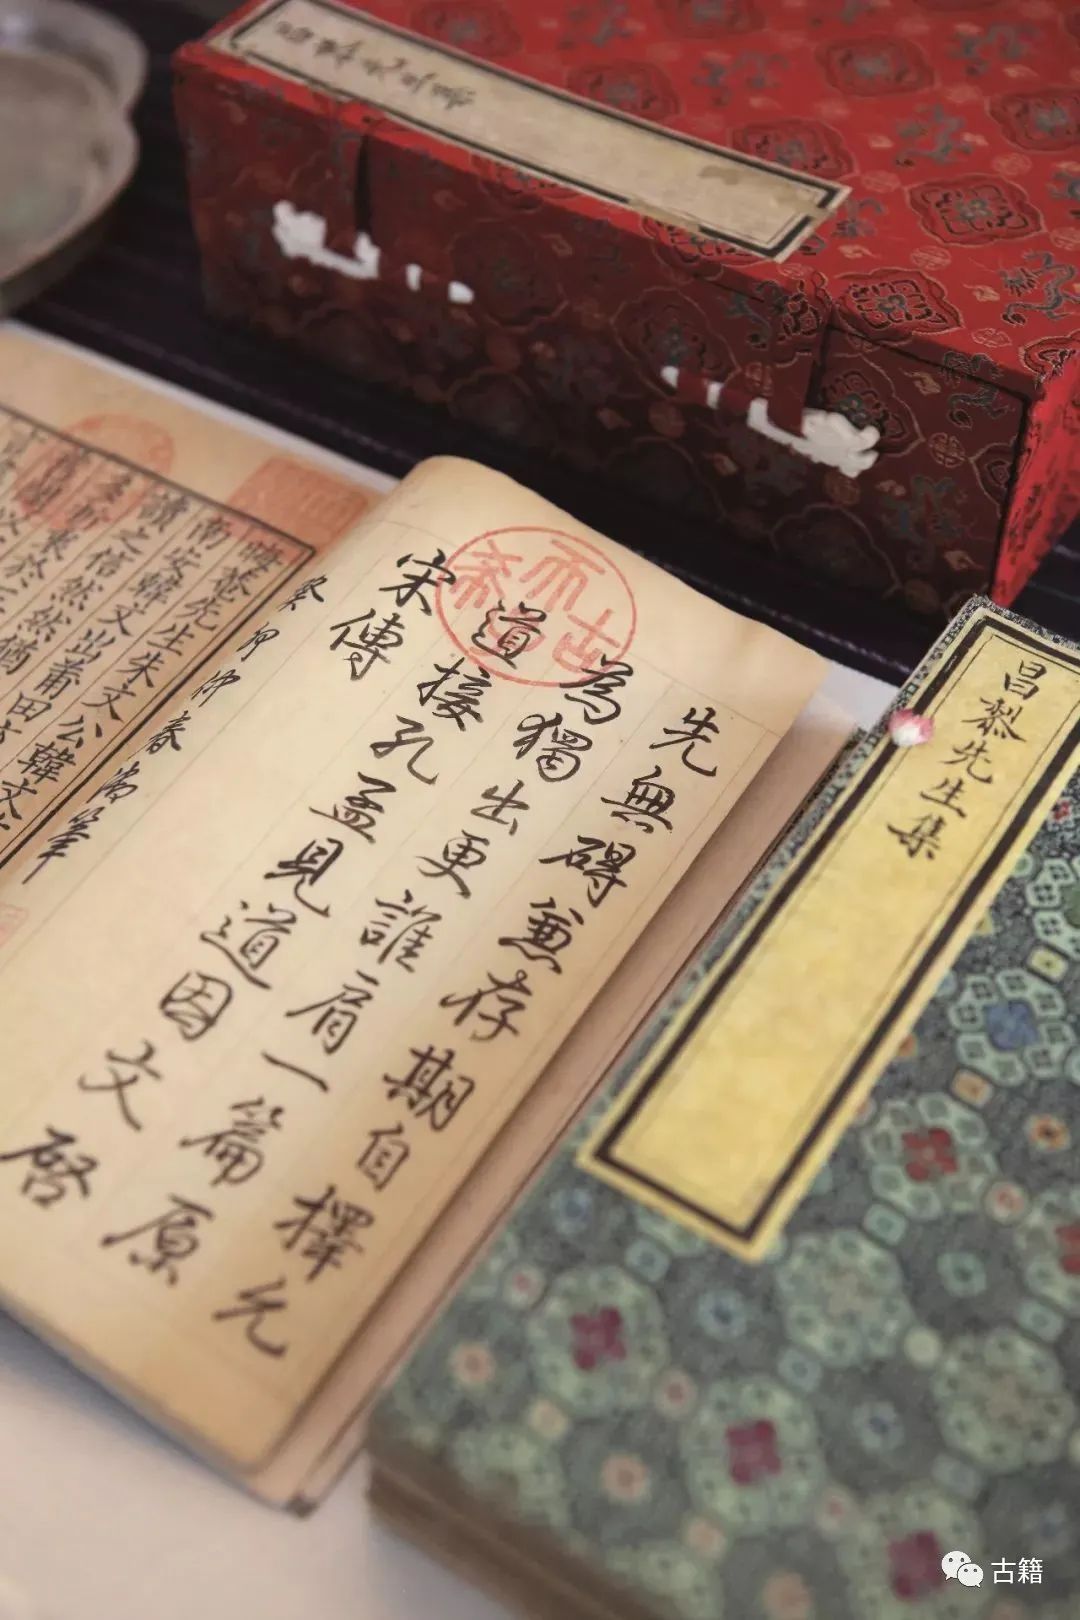 昌黎先生集
先無碍兼存期自擇允
為獨出更誰肩一篇原
道接孔孟見道因文啓
宋傳
癸卯仲春
晦菴先生朱文公韓文
南安韓文出莆田方
讀之信然然猶
折衷於
古籍